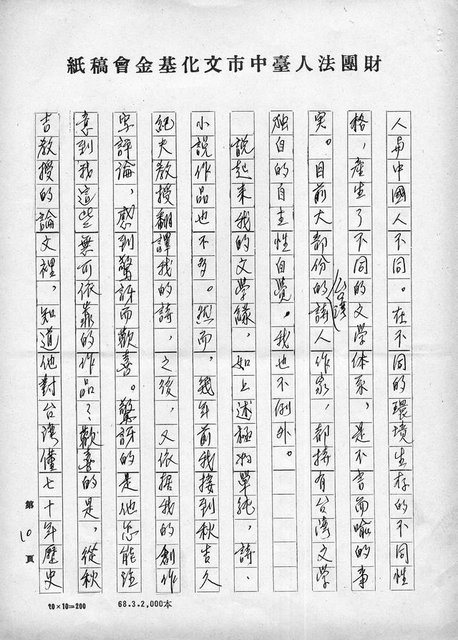 財團法人臺中市文化基金會稿紙
人與中國人不同。在不同的環境生存的不同性
格，產生了不同的文學体系，是不言而喻的事
實。目前大部份的台灣詩人作家，都持有台灣文學
独自的自主性自覺。我也不例外。
說起來我的文學緣，如上述極为單純，詩、
小說作品也不多。然而，幾年前我接到秋吉久
紀夫教授翻譯我的詩，之後，又依据我的創作
寫評論，感到驚訝而歡喜。驚訝的是他怎能注
意到我這些無可依靠的作品？歡喜的是，從秋
吉教授的論文裡，知道他對台灣僅七十年歷史
第10頁
20×10=200
68.3.2,000本